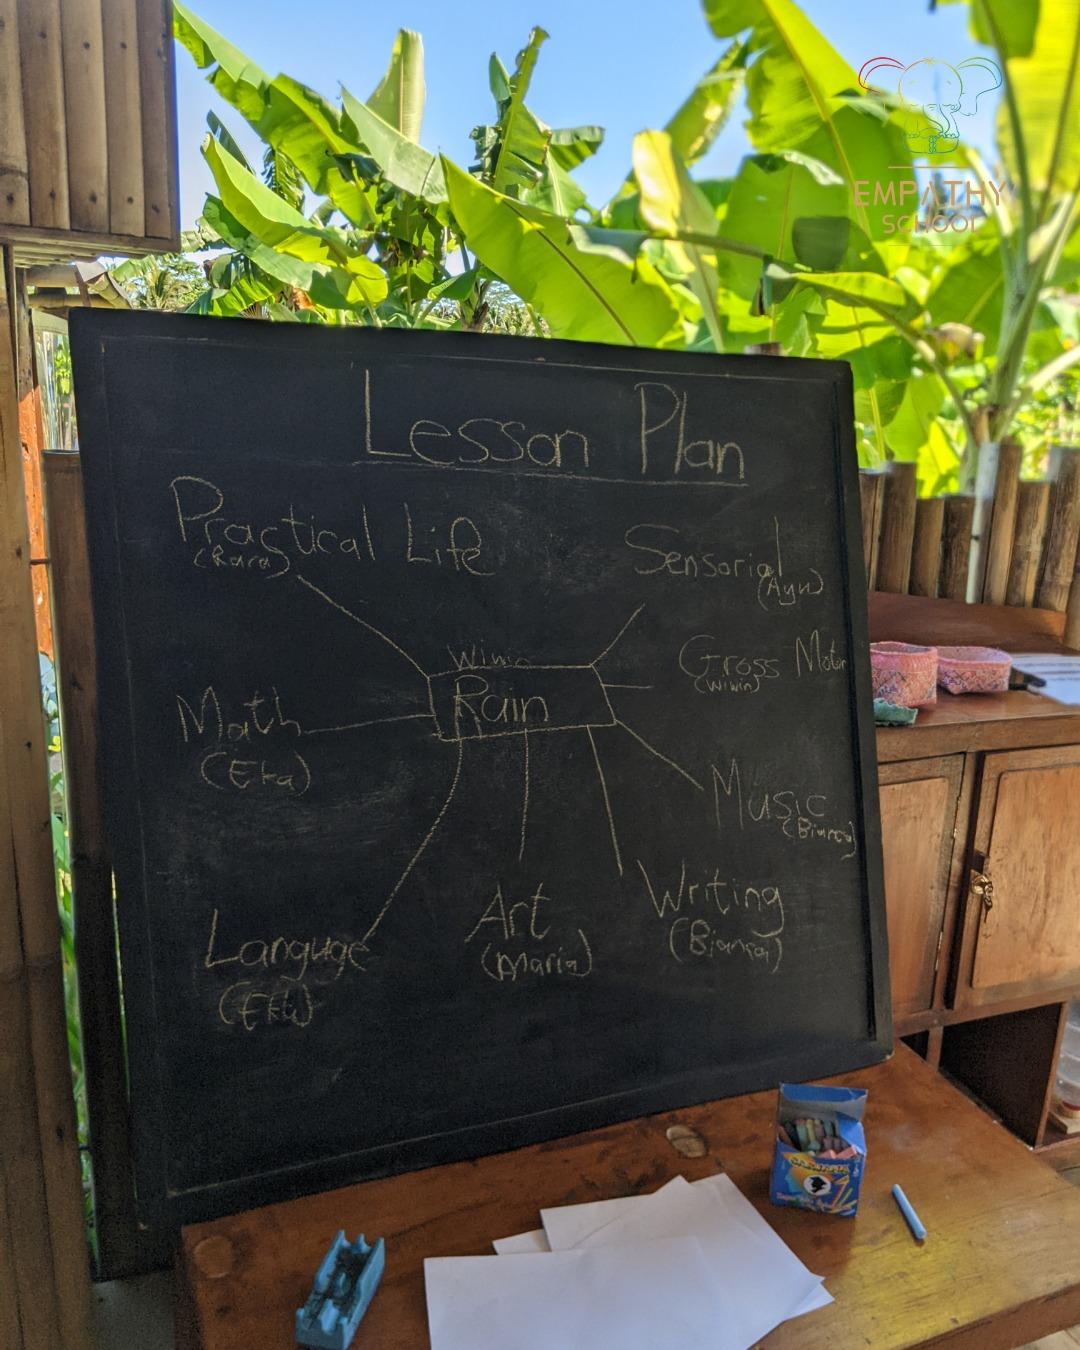 EMPATHY
SCHOOL
Lesson Plan
Practical Life
(Rara)
Sensorial
(Ayu)
Wiwin
Rain
Gross Motor
(Wiwin)
Math
(Eka)
Music
(Bianca)
Writing
(Bianca)
Art
(Maria)
Languge